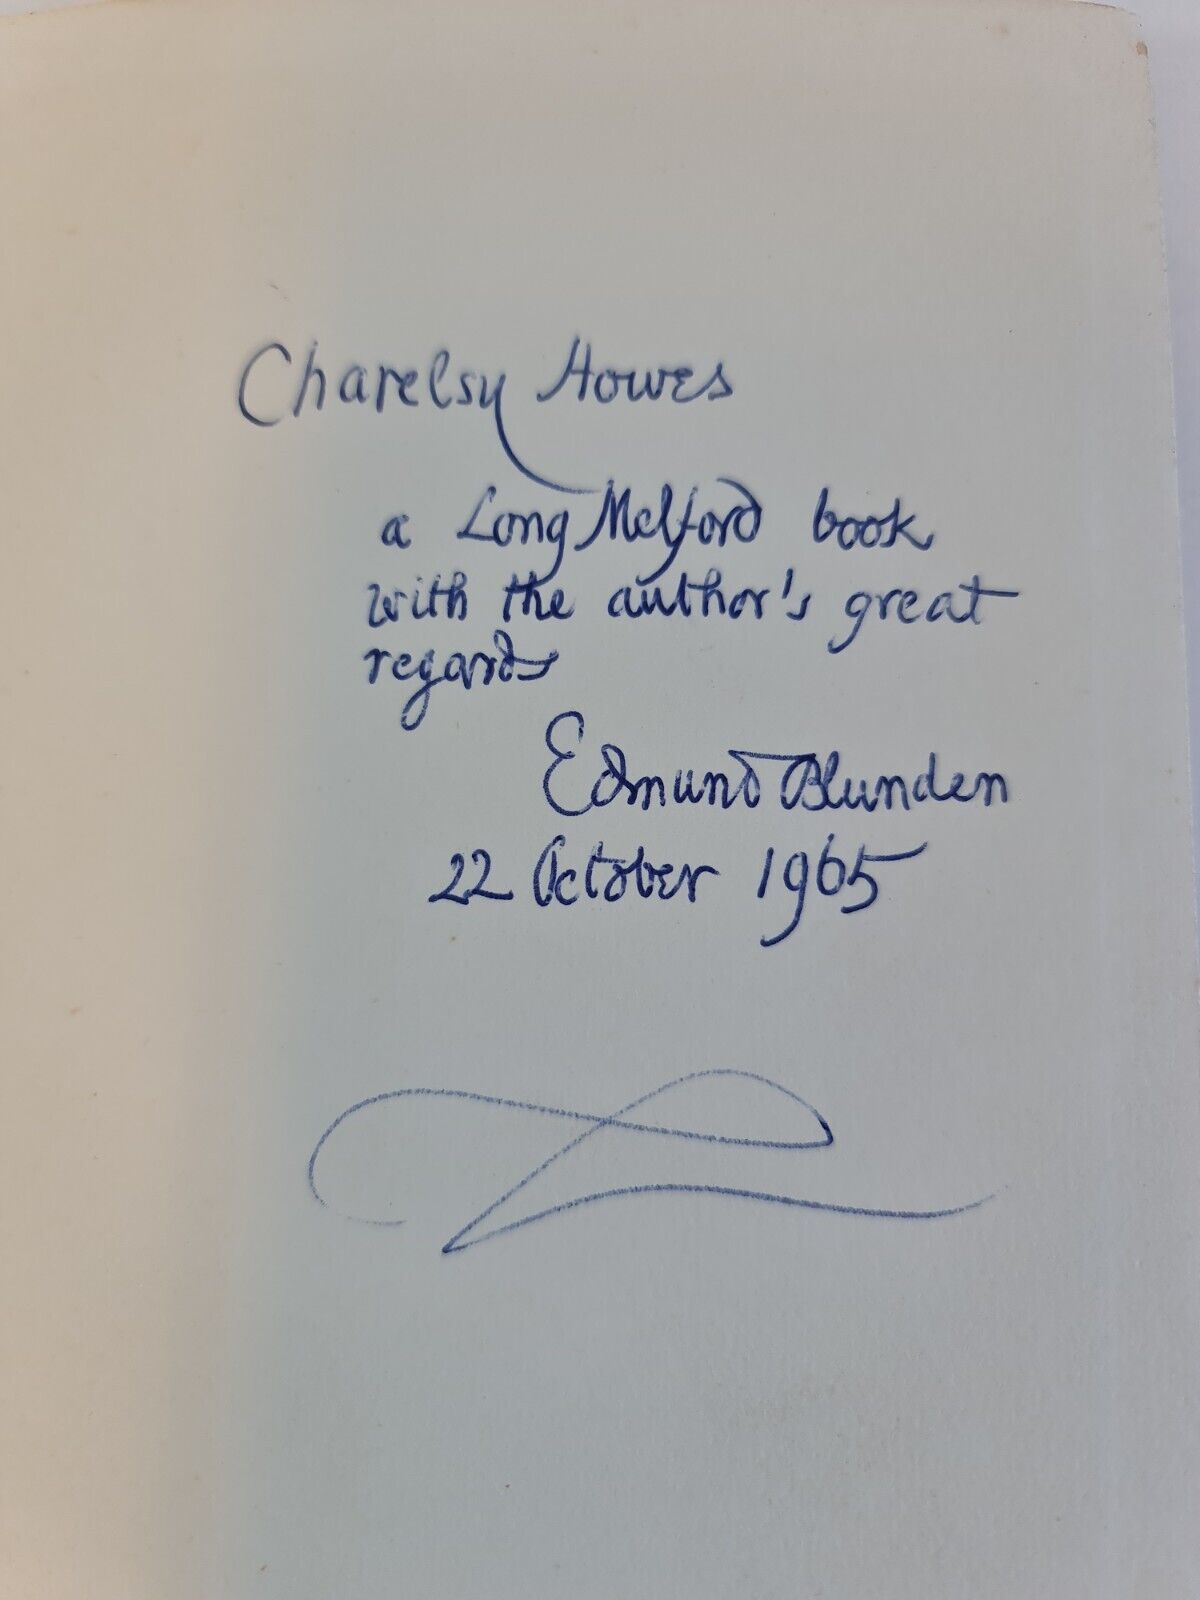 Charelsy Howes
a Long Melford book
with the author's great
regards
Edmund Blunden
22 October 1965